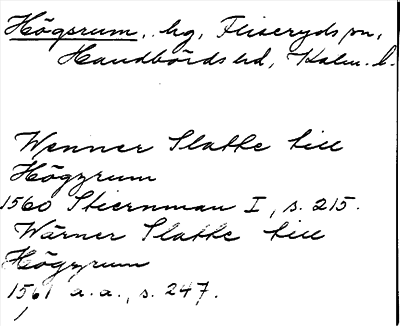 Högsrum, hg, Fliseryds sn,
Handbörds hd, Kalm. l.
Wenner Slatte till
Högzrum
1560 Stiernman I, s. 215.
Wärner Slatte till
Högzrum
1561 a.a., s. 247.